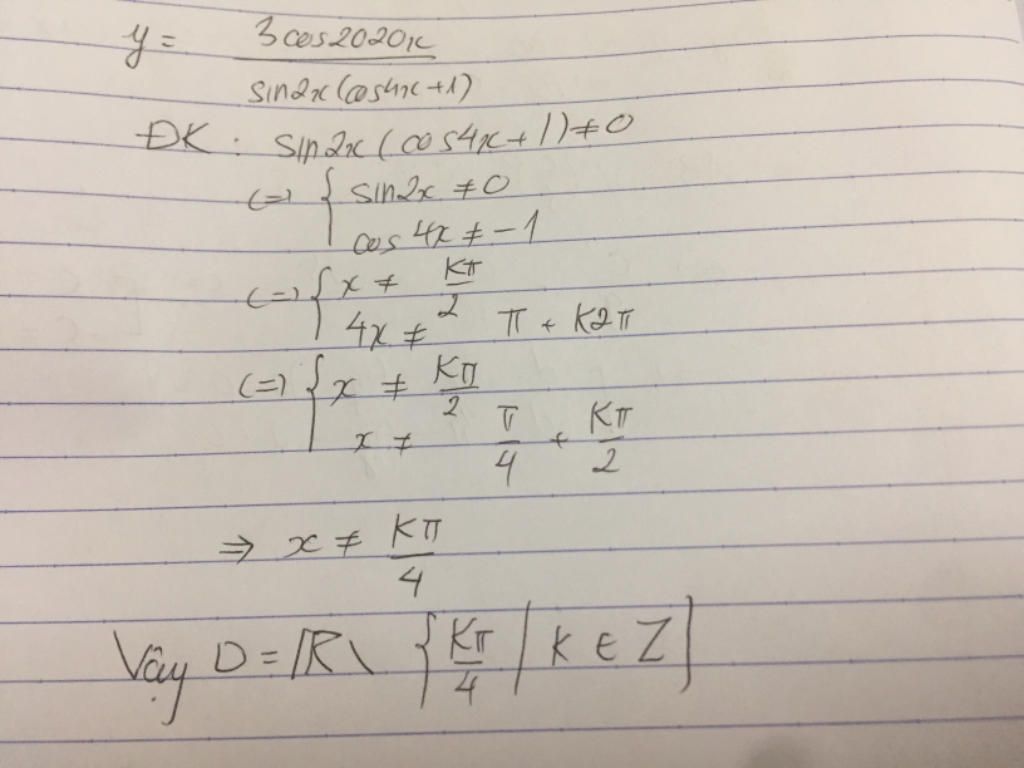 y = 3cos2020x / sin2x(cos4x+1)
ĐK : sin2x(cos4x+1)≠0
(=) { sin2x ≠ 0
cos4x ≠ -1
(=) { x ≠ kπ/2
4x ≠ π + k2π
(=) { x ≠ kπ/2
x ≠ π/4 + kπ/2
⇒ x ≠ kπ/4
Vậy D = ℝ \ { kπ/4 | k ∈ Z }